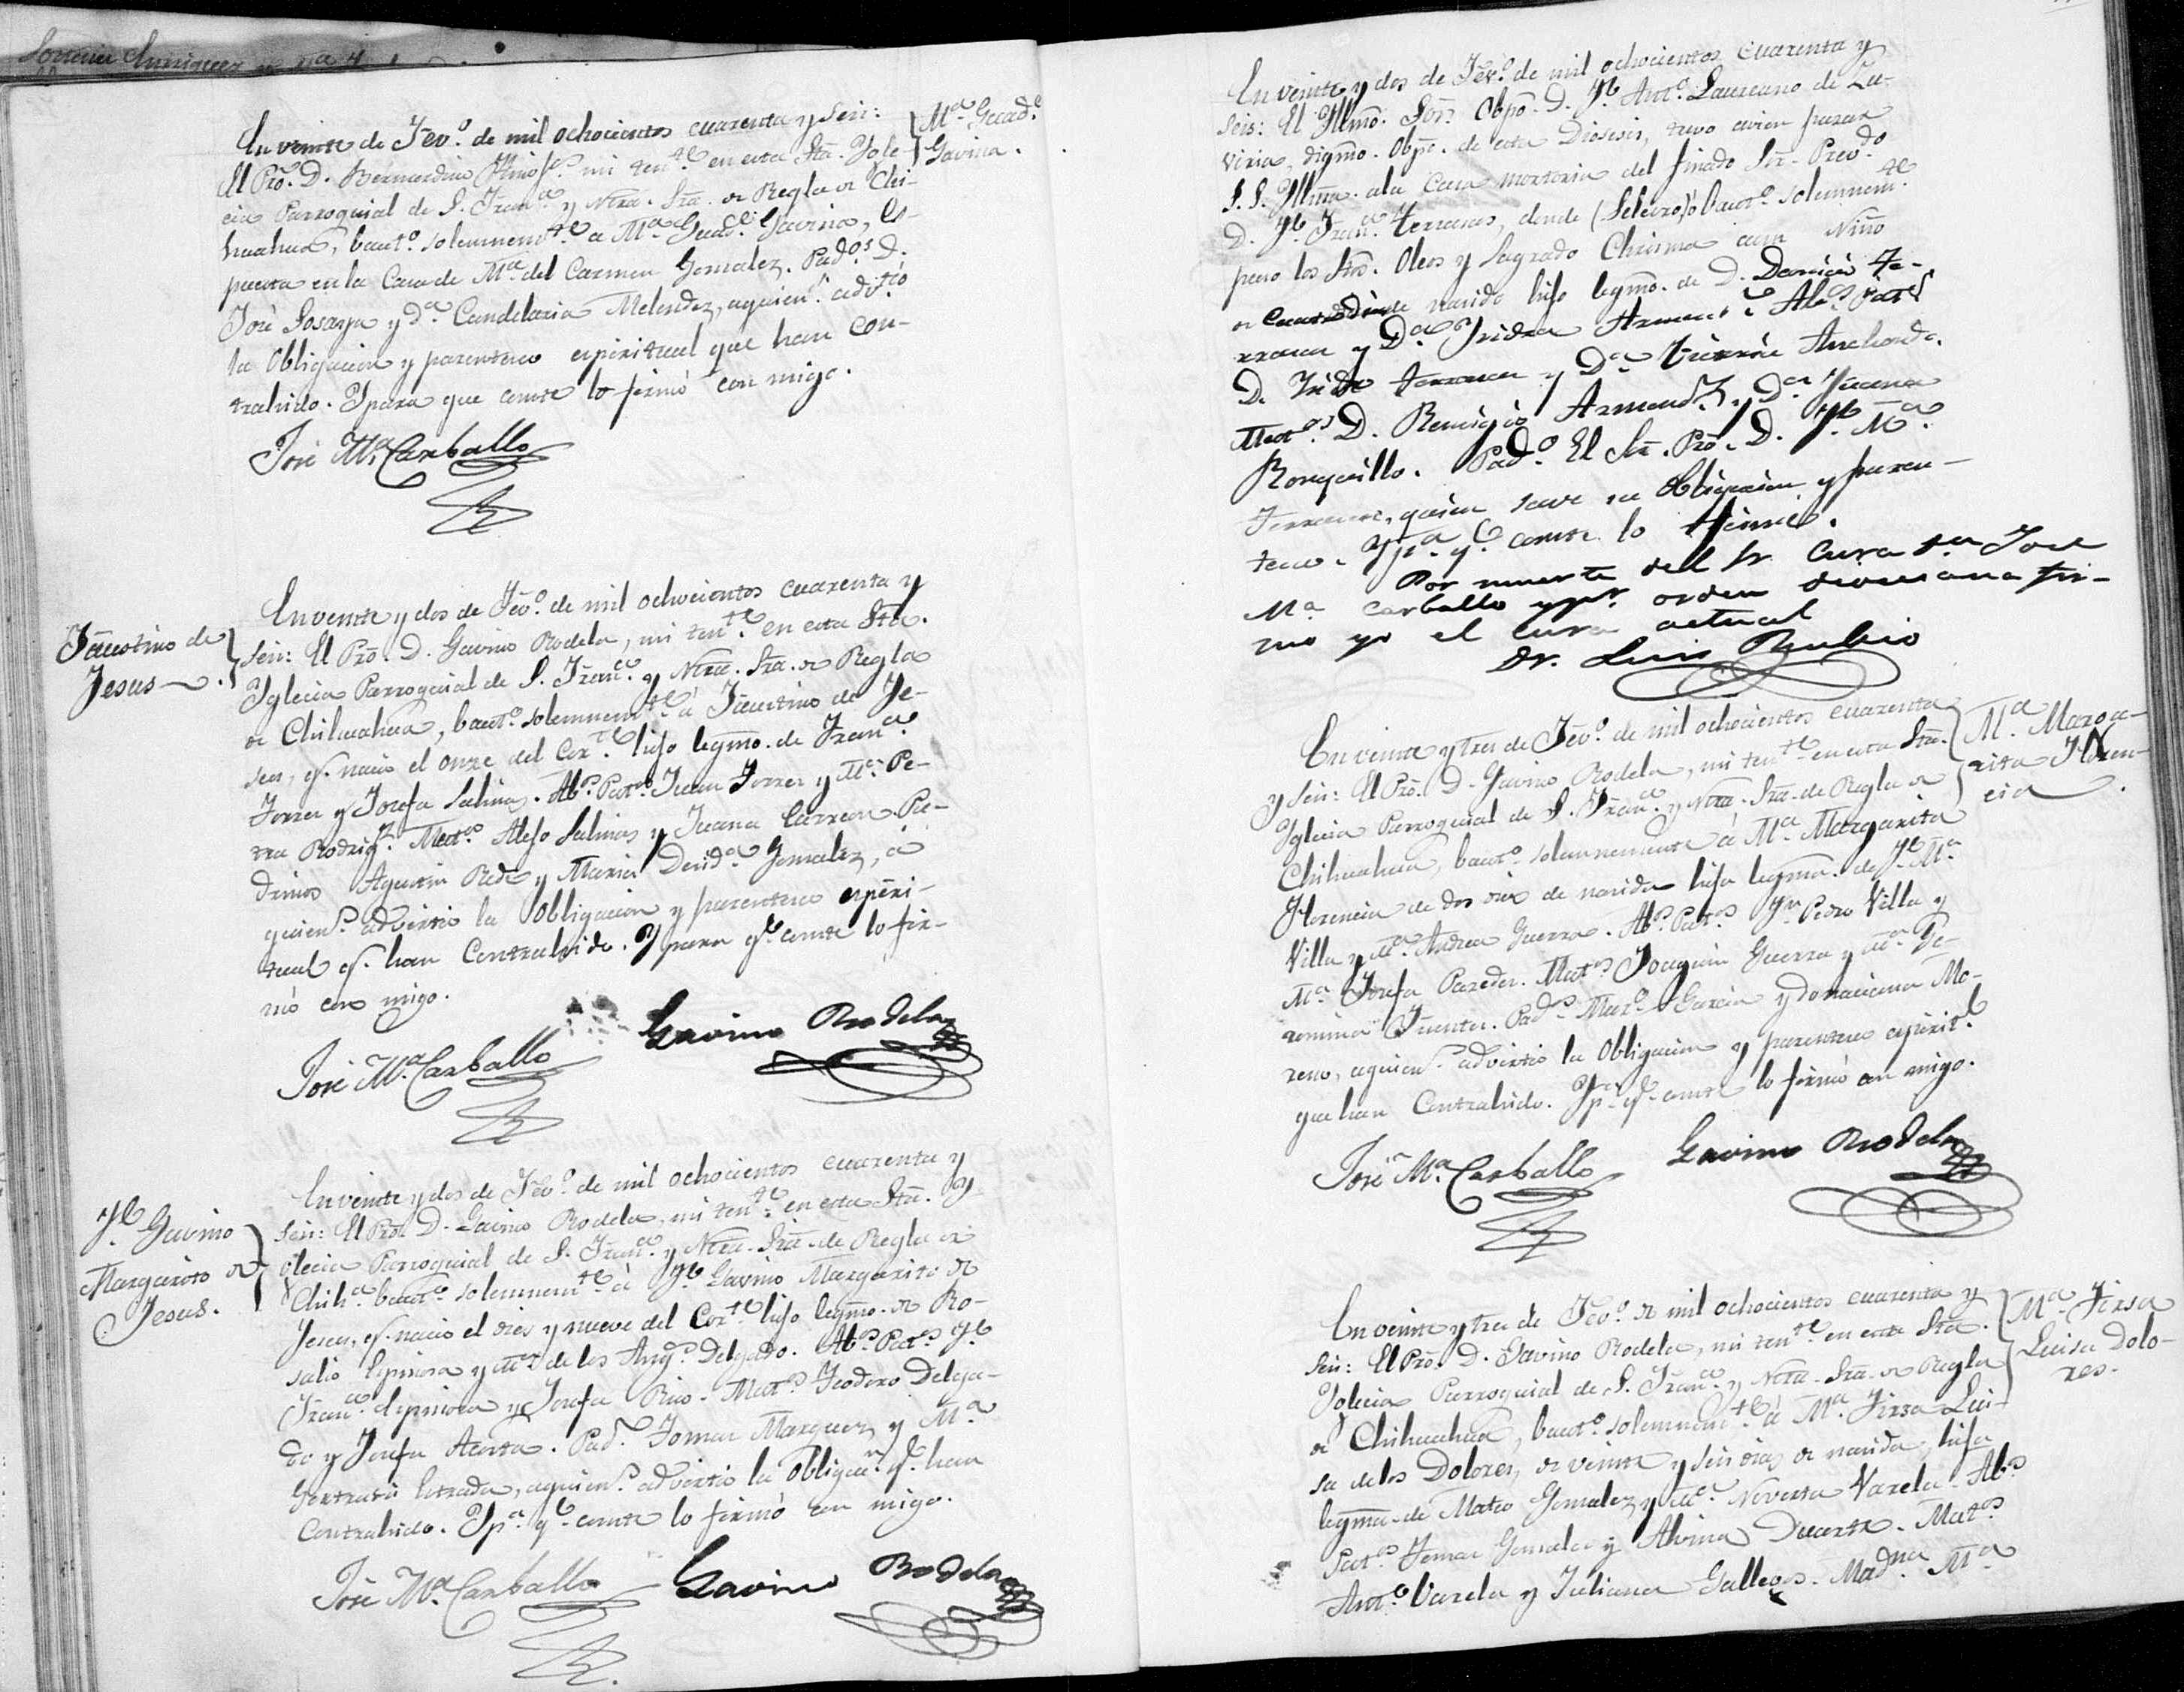 En veinte de Fev.º de mil ochocientos cuarenta y seis:
El Pro. D. Bernardino mi ten.te en esta Sta. Ygle-
cia Parroquial de S. Fran.co y Ntra. Sra. de Regla de Chi-
huahua, baut.º solemnem.te a M.a Guad.e Gavina, es-
puesta en la Casa de M.a del Carmen Gonzalez. Pad.os D.
José Losaya y D.a Candelaria Melendez, a quien.s advirtió
la Obligacion y parentesco espiritual que han con-
trahido. Y para que conste lo firmó con migo.
José M.a Carballo
M.a Guad.e
Gavina.
Faustino de
Jesus
En veinte y dos de Fev.º de mil ochocientos cuarenta y
seis: El Pro. D. Gavino Rodela, mi ten.te en esta Sta.
Yglecia Parroquial de S. Fran.co y Ntra. Sra. de Regla
de Chihuahua, baut.º solemnem.te á Faustino de Je-
sus, q. nació el onze del Cor.te hijo legmo. de Fran.co
Torres y Josefa Salinas. Ab.s Pat.s Juan Torres y M.a Pe-
tra Rodrig.z Mat.os Alejo Salinas y Juana Carreon Pa-
drinos Agustin y Maria Gonzalez, á
quien.s advirtió la Obligacion y parentesco espiri-
tual q. han Contrahido. Y para q.e conste lo fir-
mó con migo.
José M.a Carballo Gavino Rodela
J.e Gavino
Margarito de
Jesus.
En veinte y dos de Fev.º de mil ochocientos cuarenta y
seis: El Pro. D. Gavino Rodela, mi ten.te en esta Sta. Y-
glecia Parroquial de S. Fran.co y Ntra. Sra. de Regla de
Chih.a baut.º solemnem.te á J.e Gavino Margarito de
Jesus, q. nació el dies y nueve del Cor.te hijo legmo. de Ro-
salio Espinosa y M.a de los Ang.s Delgado. Ab.s Pat.s J.e
Fran.co Espinosa y Josefa Rico. Mat.s Teodoro Delga-
do y Josefa Acosta. Pad.s Tomas Marquez y M.a
Gertrudis Estrada, a quien.s advirtió la Obligac.n q.e han
Contrahido. Y p.a q.e conste lo firmó con migo.
José M.a Carballo Gavino Rodela
En veinte y dos de Fev.º de mil ochocientos cuarenta y
seis: El Yllmo. Sor. Obpo. D. J.e Ant.º Laureano de Zu-
viria, digmo. Obpo. de esta Diosesis, tuvo a bien pasar
S. S. Yllma. a la Casa mortoria del finado Sr. Prev.do
D. J.e Fran.co Terrasas, donde baut.º solemnem.te
puso los Stos. Oleos y Sagrado Chrisma a un Niño
de nasido hijo legmo. de D. Te-
rrasas y D.a Ysidra Armend.z Ab.s Pat.s
D. Terrasas y D.a Anchondo.
Mat.os D. Remigio Armend.z y D.a Juana
Ronquillo. Pad.º El Sr. Pro. D. J.e M.a
Terrasas, quien save su Obligacion y paren-
tesco. Y p.a q.e conste lo firmé.
Por muerte del Sr. Cura D.n José
M.a Carballo y p.r orden diocesana fir-
mo yo el cura actual
Dr. Luis Rubio
En veinte y tres de Fev.º de mil ochocientos cuarenta
y seis: El Pro. D. Gavino Rodela, mi ten.te en esta Sta.
Yglecia Parroquial de S. Fran.co y Ntra. Sra. de Regla de
Chihuahua, baut.º solemnemente á M.a Margarita
Florencia de dos dias de nasida hija legma. de J.e M.a
Villa y M.a Andrea Guerra. Ab.s Pat.s J.n Pedro Villa y
M.a Josefa Paredes. Mat.s Joaquin Guerra y M.a Ge-
ronima Fuentes. Pad.s Marc.º Garcia y Donaciana Mo-
reno, a quien.s advirtió la Obligacion y parentesco espirit.l
que han Contrahido. Y p.a q.e conste lo firmó con migo.
José M.a Carballo Gavino Rodela
M.a Marga-
rita Floren-
cia
En veinte y tres de Fev.º de mil ochocientos cuarenta y
seis: El Pro. D. Gavino Rodela, mi ten.te en esta Sta.
Yglecia Parroquial de S. Fran.co y Ntra. Sra. de Regla
de Chihuahua, baut.º solemnem.te á M.a Tirsa Lui-
sa de los Dolores, de veinte y seis dias de nasida, hija
legma. de Mateo Gonzalez y M.a Noverta Varela. Ab.s
Pat.os Tomas Gonzales y Alvina Duarte. Mat.os
Ant.º Varela y Juliana Gallegos. Mad.na M.a
M.a Tirsa
Luisa Dolo-
res.